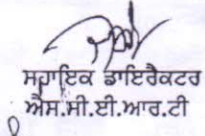 ਸਹਾਇਕ ਡਾਇਰੈਕਟਰ
ਐਸ.ਸੀ.ਈ.ਆਰ.ਟੀ